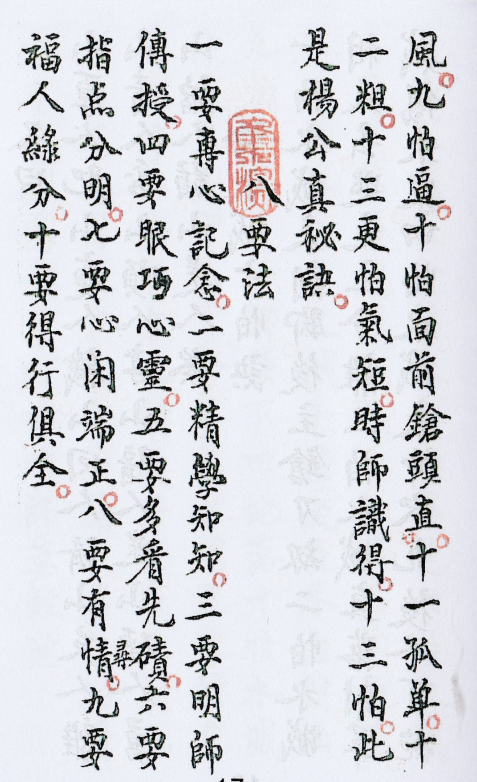 風九怕逼十怕面前鎗頭直十一孤单十
二粗十三更怕氣短時師識得十三怕此
是楊公真秘訣
八要法
一要專心記念二要精學知知三要明師
傳授四要眼巧心靈五要多看先磧六要
指点分明七要心闲端正八要有情尋九要
福人緣分十要得行俱全